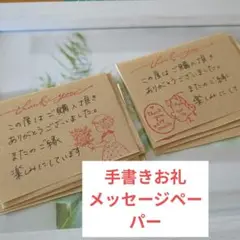 Thank you
この度はご購入頂き
ありがとうございました。
またのご縁
楽しみにしています
Thank you
この度はご購入頂き
ありがとうございました。
またのご縁
楽しみにして
手書きお礼
メッセージペー
パー